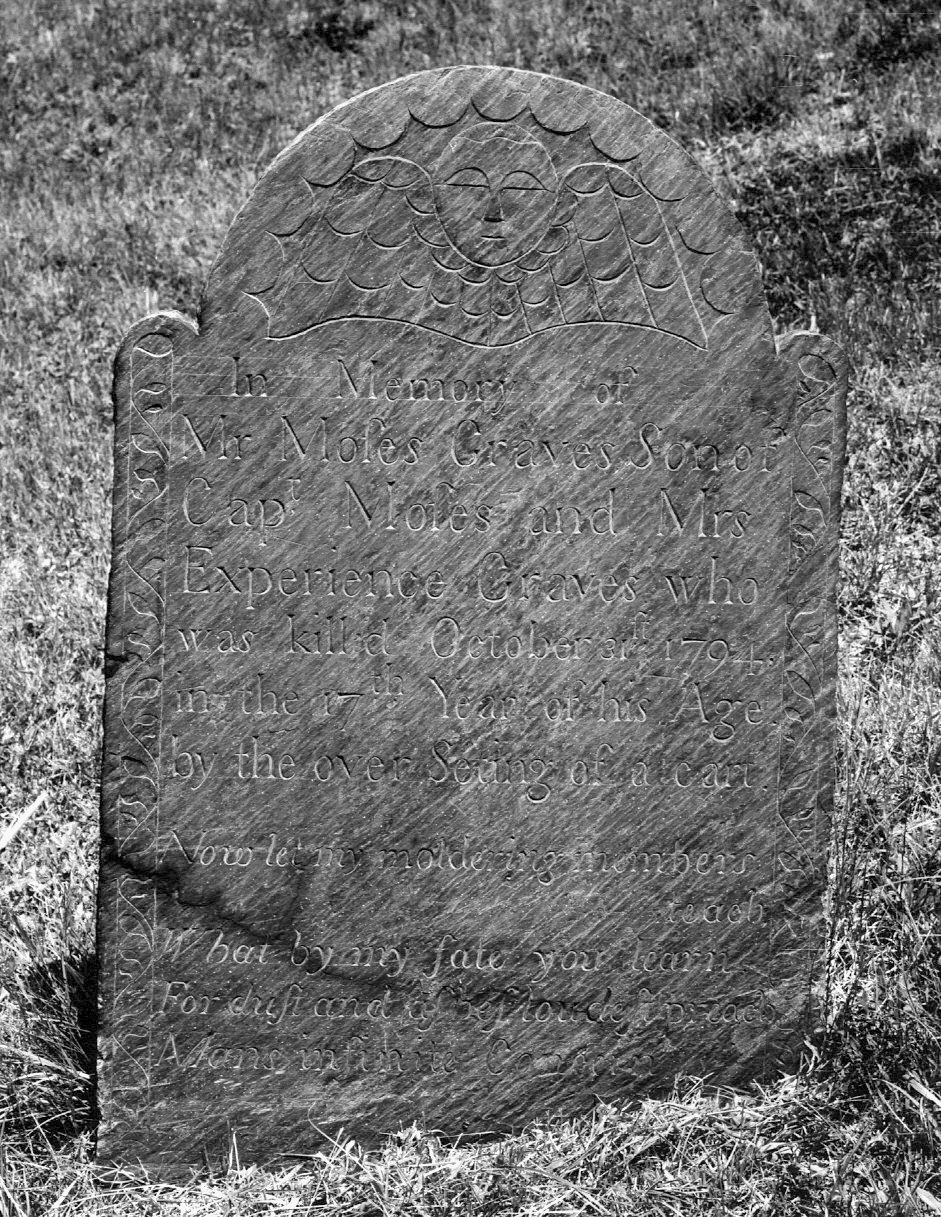 In Memory of
Mr Moſes Graves Son of
Capt Moſes and Mrs
Experience Graves who
was kill'd October 31ſt 1794,
in the 17th Year of his Age
by the over Seting of a cart.
Now let my moldering members
teach
What by my fate you learn
For duſt and aſhes loudeſt preach
Mans infinite Concern